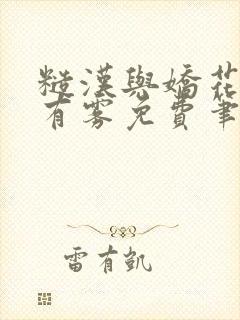 糙漢與嬌花
有霧免費筆
雷有凱